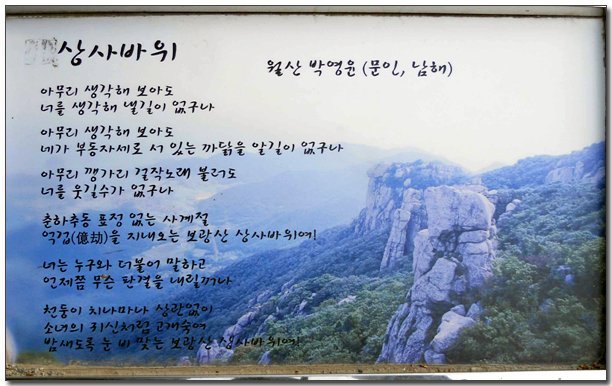 상사바위
월산 박영윤 (문인, 남해)
아무리 생각해 보아도
너를 생각해 낼길이 없구나
아무리 생각해 보아도
네가 부동자세로 서 있는 까닭을 알길이 없구나
아무리 깽가리 걸작노래 불러도
너를 웃길수가 없구나
춘하추동 표정 없는 사계절
억겁(億劫)을 지내오는 보광산 상사바위여!
너는 누구와 더불어 말하고
언제쯤 무슨 판결을 내릴꺼나
천둥이 치나마나 상관없이
소녀의 귀신처럼 고개숙여
밤새도록 눈 비 맞는 보광산 상사바위여!